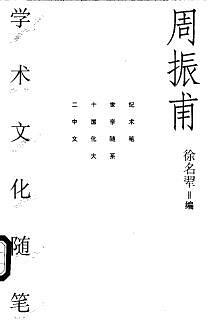 周振甫
学术文化随笔
二十世纪
中国学术
文化随笔
大系
徐名翚=编